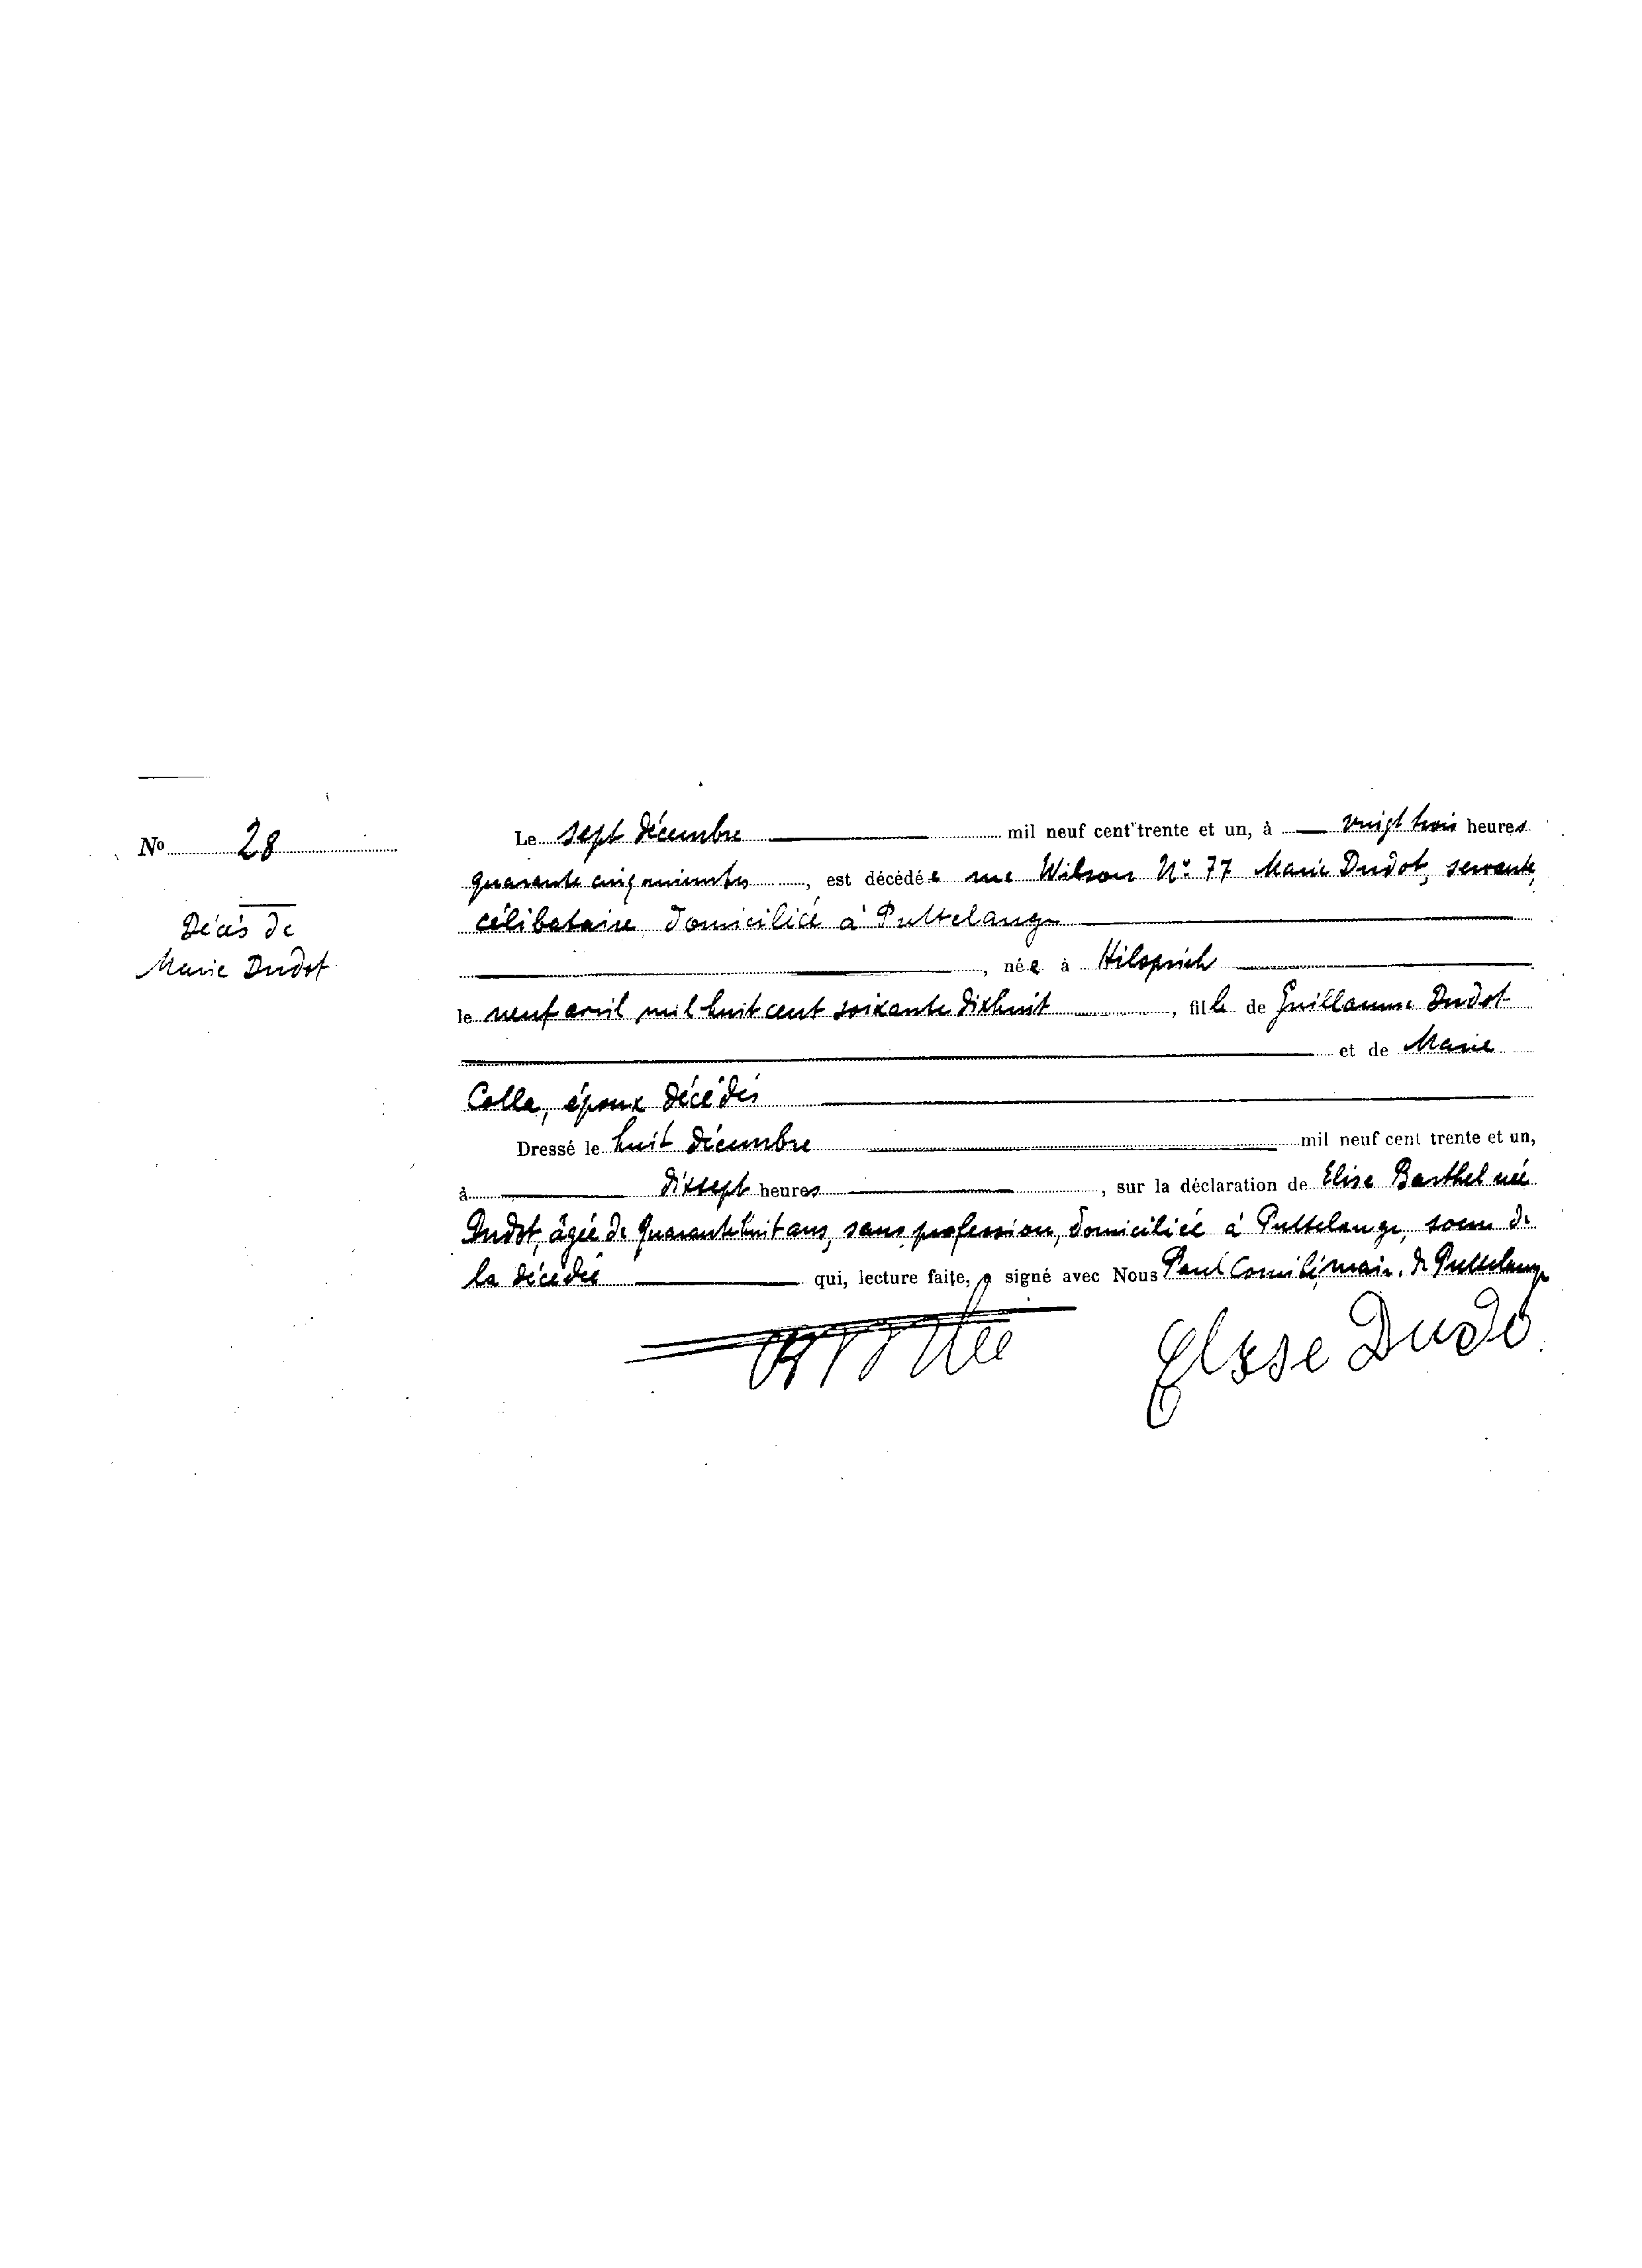 Nº 28
Décès de
Marie Dudot
Le sept décembre mil neuf cent trente et un, à vingt trois heures
quarante cinq minutes, est décédée rue Wilson Nº 77 Marie Dudot, servante,
célibataire domiciliée à Puttelange
, née à Hilsprich
le neuf avril mil huit cent soixante dixhuit, fille de Guillaume Dudot
et de Marie
Colle, époux décédés
Dressé le huit décembre mil neuf cent trente et un,
à dixsept heures, sur la déclaration de Elise Barthel née
Dudot, âgée de quarantehuit ans, sans profession, domiciliée à Puttelange, soeur de
la décédée qui, lecture faite, a signé avec Nous Paul maire de Puttelange
Elise Dudo